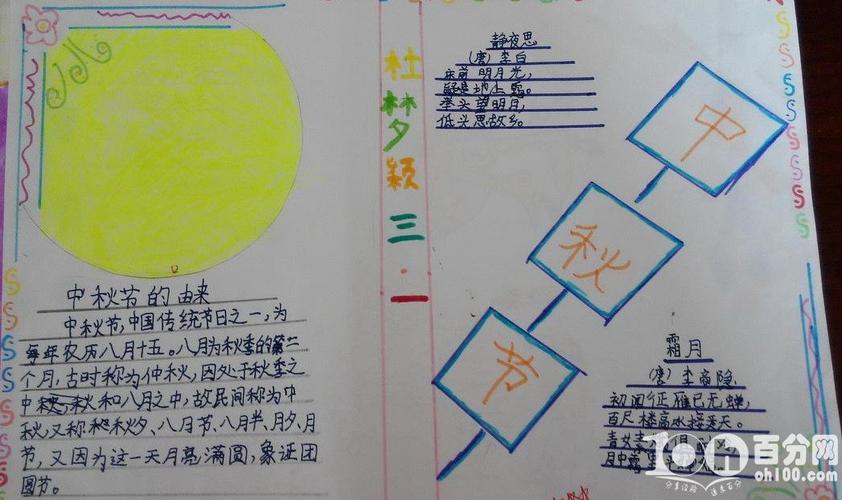 中秋节的由来
中秋节,中国传统节日之一,为
每年农历八月十五。八月为秋季的第二
个月,古时称为仲秋,因处于秋季之
中和八月之中,故民间称为中
秋,又称秋夕、八月节、八月半、月夕、月
节,又因为这一天月亮满圆,象证团
圆节。
杜梦颖三·一
静夜思
(唐)李白
床前明月光,
疑是地上霜。
举头望明月,
低头思故乡。
中
秋
节
霜月
(唐)李商隐
初闻征雁已无蝉,
百尺楼高水接天。
青女
月中霜里
百分网
oh100.com